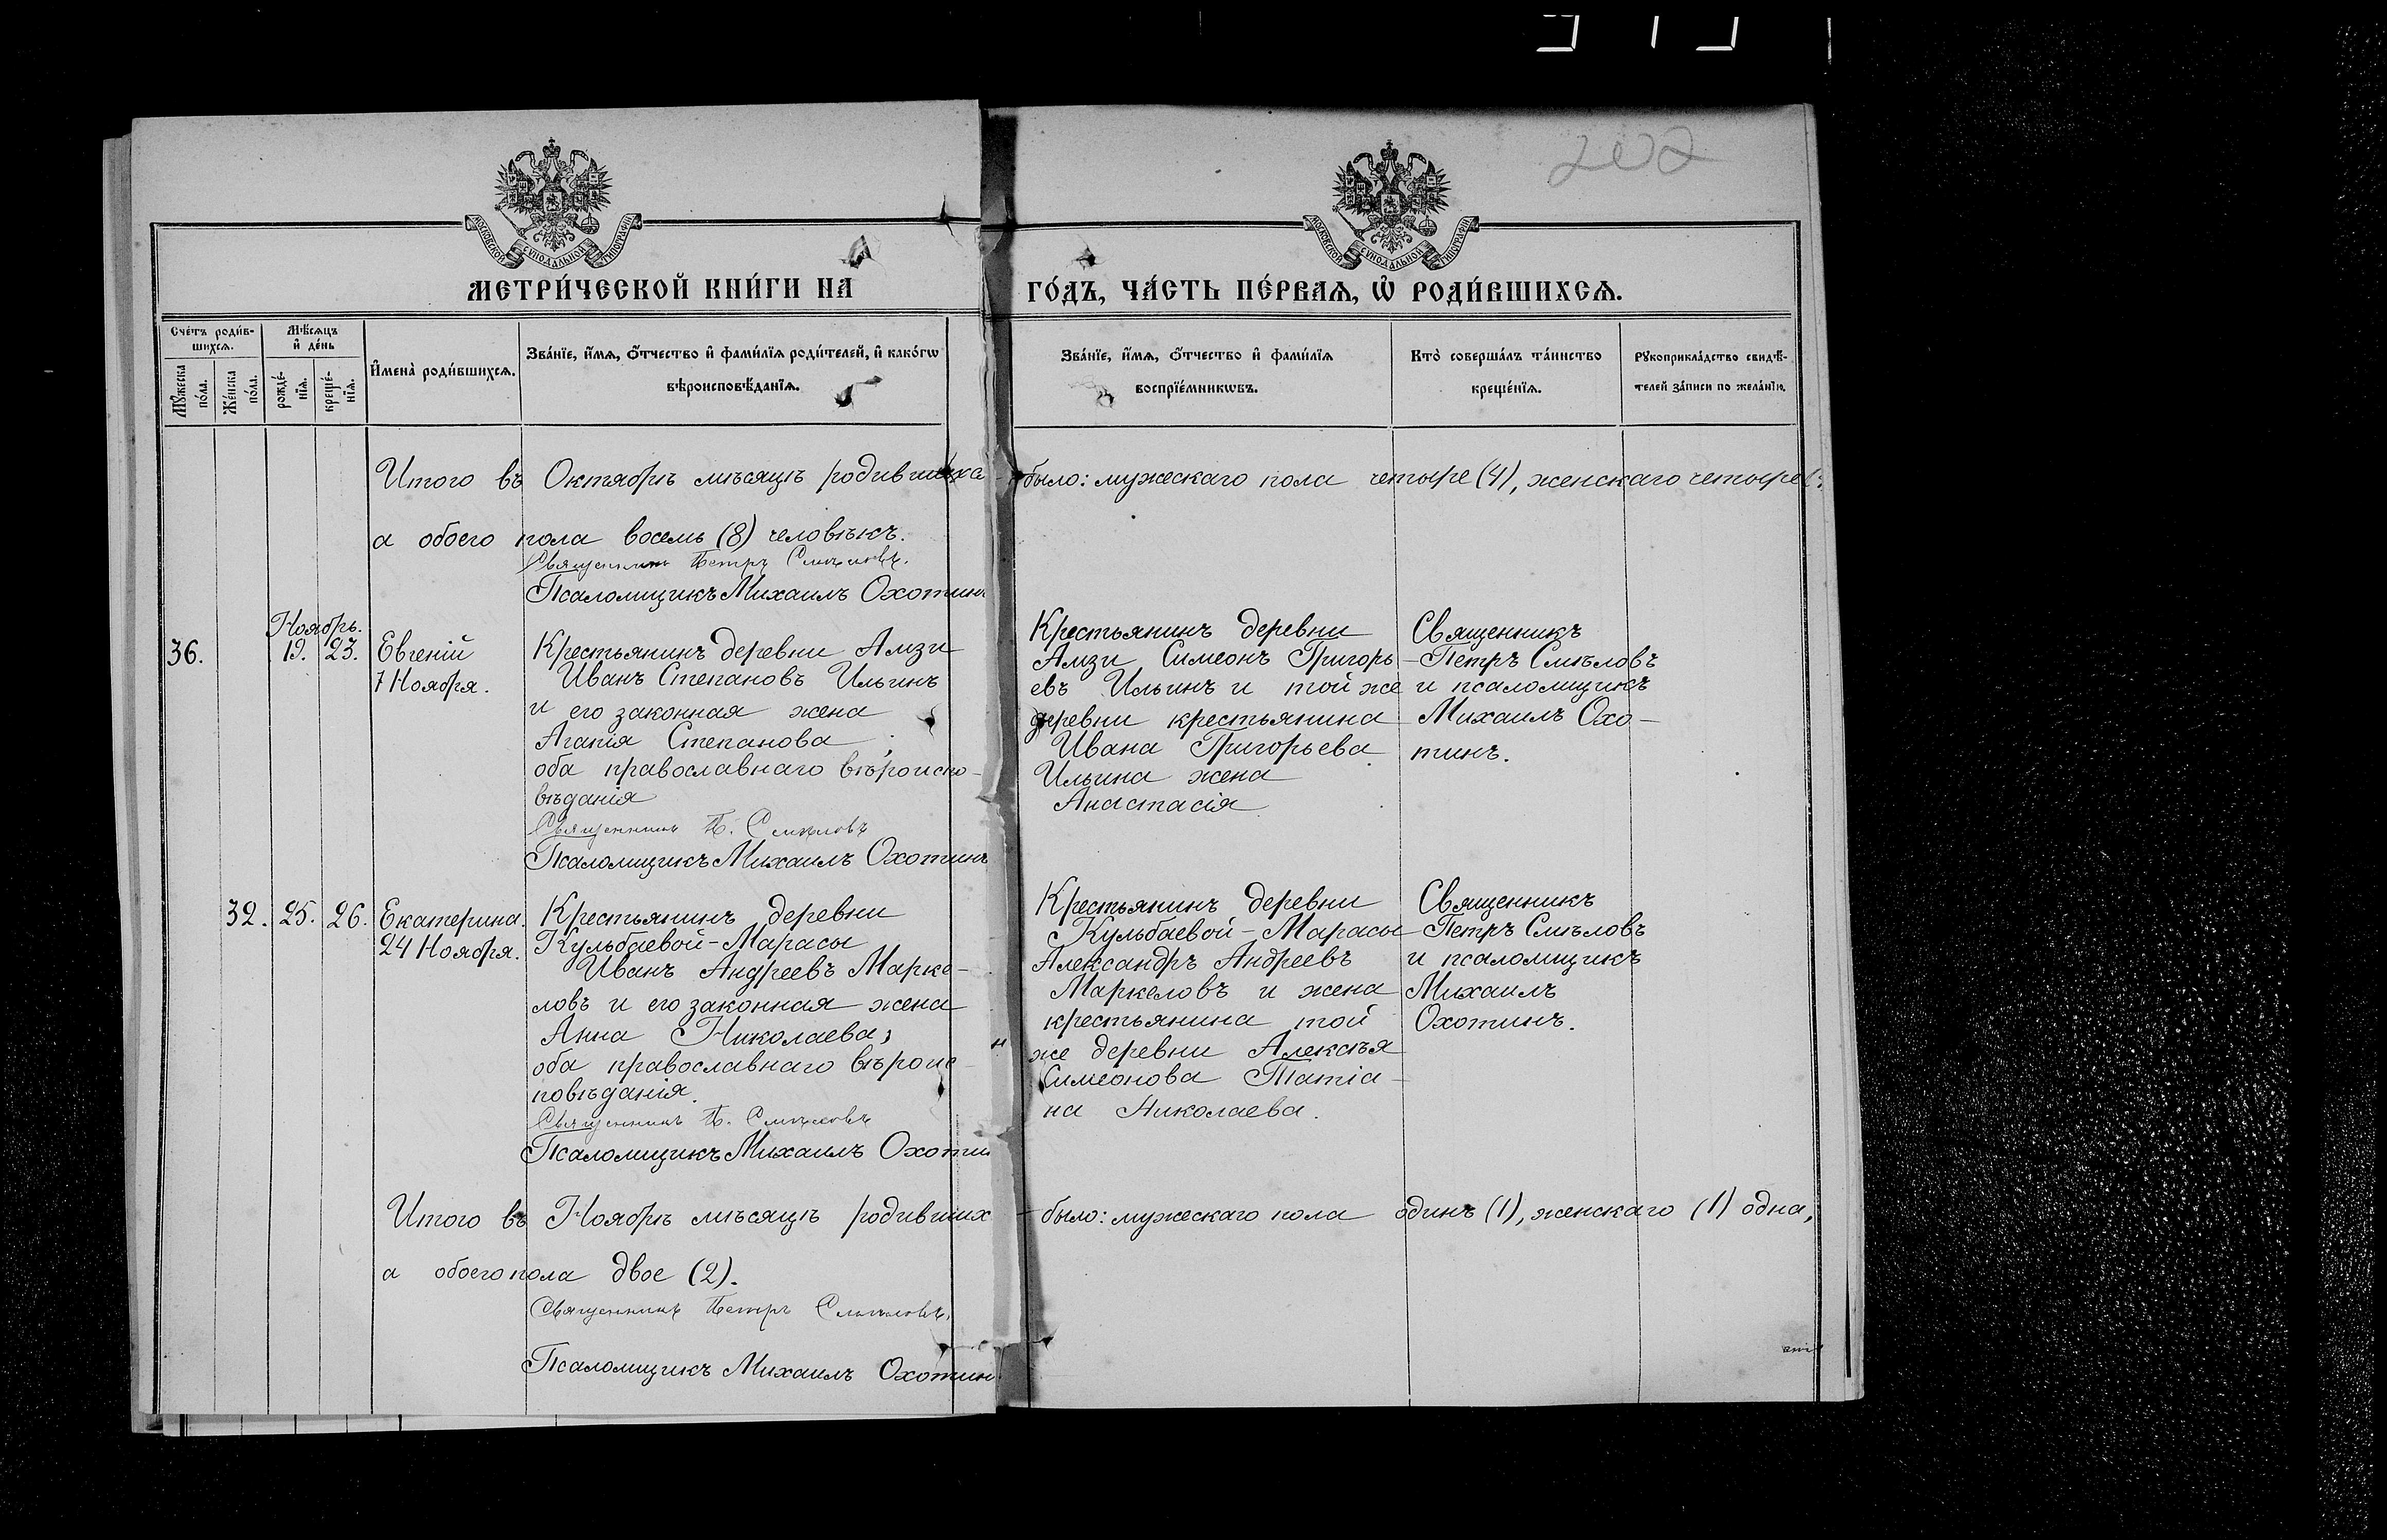 202
МОСКОВСКОЙ СѴНОДАЛЬНОЙ ТИПОГРАФІИ
МОСКОВСКОЙ СѴНОДАЛЬНОЙ ТИПОГРАФІИ
МЕТРИ́ЧЕСКОЙ КНИ́ГИ НА ГО́ДЪ, ЧА́СТЬ ПЕ́РВАѦ, Ѽ РОДИ́ВШИХСѦ.
Сче́тъ роди́в-
шихсѧ.
Мꙋ́жеска по́ла.
Же́нска по́ла.
Мѣ́сѧцъ и҆ де́нь
рожде́-нїѧ.
креще́-нїѧ.
И҆мена̀ роди́вшихсѧ.
Зва́нїе, и҆́мѧ, ѻ҆́тчество и҆ фами́лїѧ роди́телей, и҆ како́гѡ
вѣроисповѣ́данїѧ.
Зва́нїе, и҆́мѧ, ѻ҆́тчество и҆ фами́лїѧ
воспрїе́мникѡвъ.
Кто̀ соверша́лъ та́инство
креще́нїѧ.
Рꙋкоприкла́дство свидѣ́-
телей за́писи по жела́нїю.
Итого въ Октябрѣ мѣсяцѣ родившихся было: мужескаго пола четыре (4), женскаго четыре
а обоего пола восемь (8) человѣкъ.
Священникъ Петръ Смѣловъ.
Псаломщикъ Михаилъ Охотинъ
Ноябрь.
36. 19. 23.
Евгеній
7 Ноября.
Крестьянинъ деревни Амзи
Иванъ Степановъ Ильинъ
и его законная жена
Агапія Степанова;
оба православнаго вѣроиспо-
вѣданія
Священникъ П. Смѣловъ
Псаломщикъ Михаилъ Охотинъ
Крестьянинъ деревни
Амзи Симеонъ Григорь-
евъ Ильинъ и той же
деревни крестьянина
Ивана Григорьева
Ильина жена
Анастасія.
Священникъ
Петръ Смѣловъ
и псаломщикъ
Михаилъ Охо-
тинъ.
32. 25. 26.
Екатерина.
24 Ноября.
Крестьянинъ деревни
Кульбаевой-Марасы
Иванъ Андреевъ Марке-
ловъ и его законная жена
Анна Николаева;
оба православнаго вѣроис-
повѣданія.
Священникъ П. Смѣловъ
Псаломщикъ Михаилъ Охотин
Крестьянинъ деревни
Кульбаевой-Марасы
Александръ Андреевъ
Маркеловъ и жена
крестьянина той
же деревни Алексѣя
Симеонова Татіа-
на Николаева.
Священникъ
Петръ Смѣловъ
и псаломщикъ
Михаилъ
Охотинъ.
Итого въ Ноябрѣ мѣсяцѣ родивших было: мужескаго пола одинъ (1), женскаго (1) одна,
а обоего пола двое (2).
Священникъ Петръ Смѣловъ.
Псаломщикъ Михаилъ Охотин